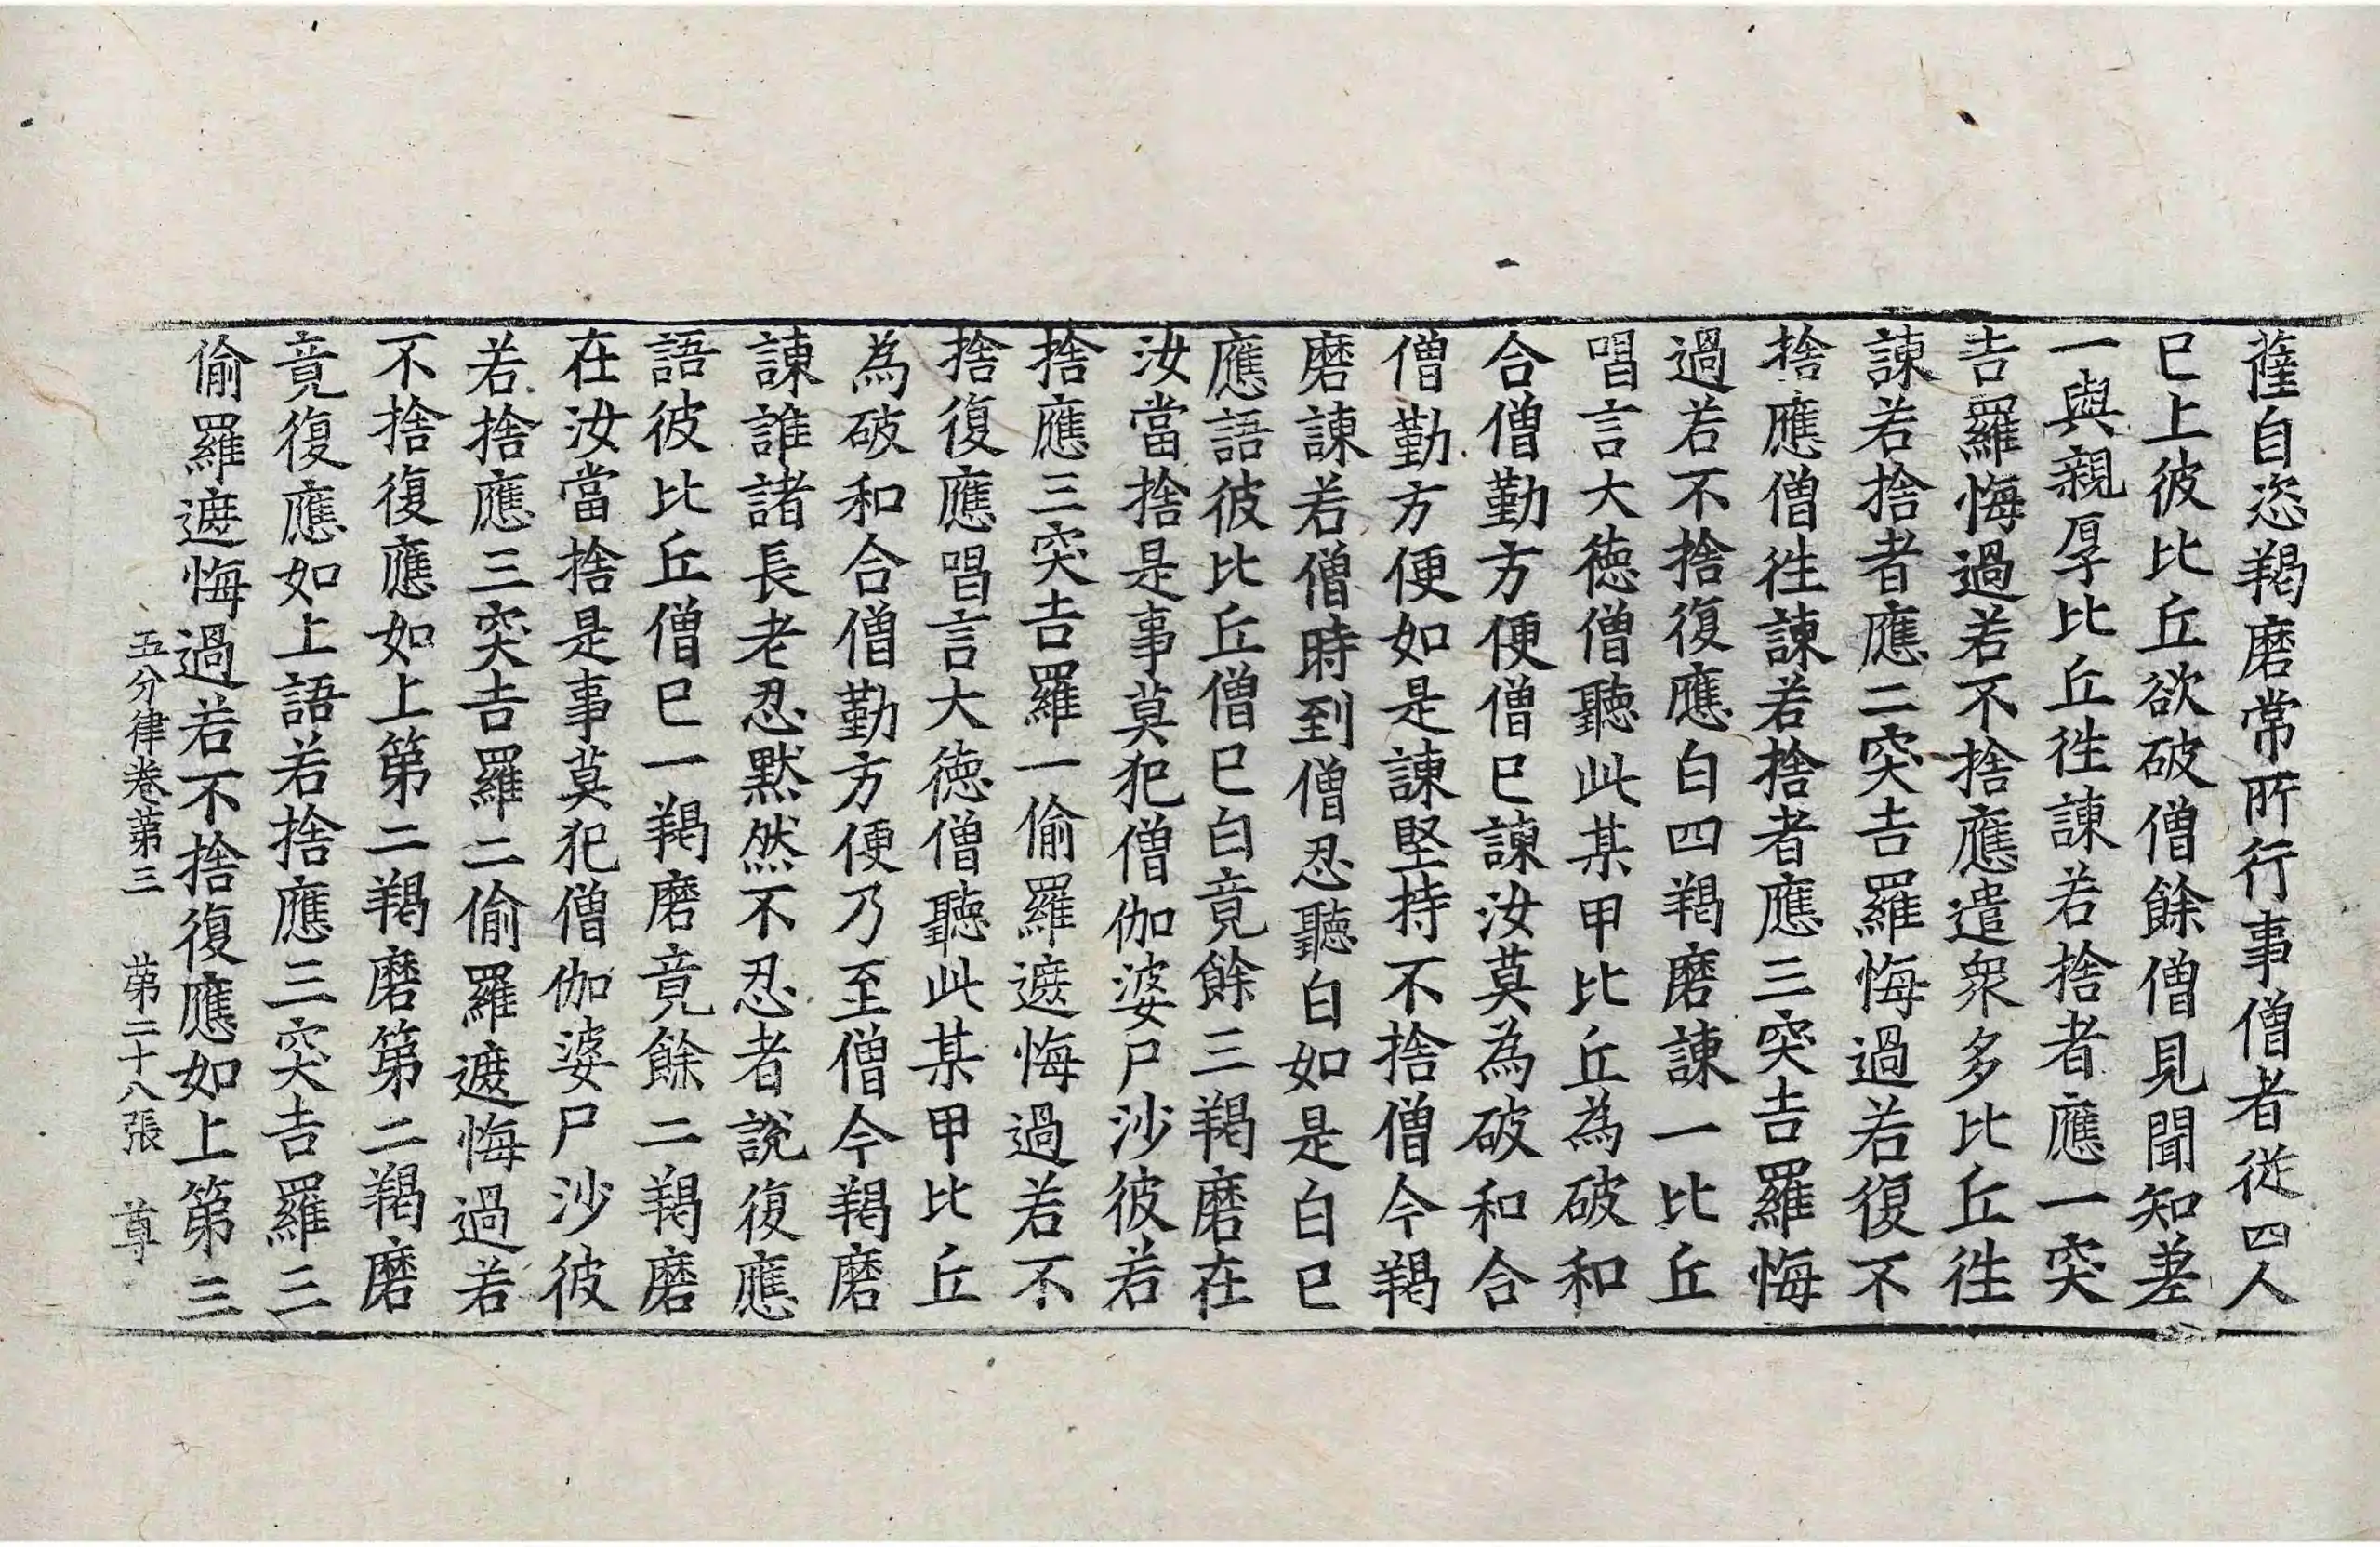 薩自恣羯磨常所行事僧者從四人
已上彼比丘欲破僧餘僧見聞知差
一與親厚比丘往諫若捨者應一突
吉羅悔過若不捨應遣衆多比丘往
諫若捨者應二突吉羅悔過若復不
捨應僧往諫若捨者應三突吉羅悔
過若不捨復應白四羯磨諫一比丘
唱言大徳僧聽此某甲比丘為破和
合僧勤方便僧已諫汝莫為破和合
僧勤方便如是諫堅持不捨僧今羯
磨諫若僧時到僧忍聽白如是白已
應語彼比丘僧已白竟餘三羯磨在
汝當捨是事莫犯僧伽婆尸沙彼若
捨應三突吉羅一偷羅遮悔過若不
捨復應唱言大徳僧聽此某甲比丘
為破和合僧勤方便乃至僧今羯磨
諫誰諸長老忍默然不忍者說復應
語彼比丘僧已一羯磨竟餘二羯磨
在汝當捨是事莫犯僧伽婆尸沙彼
若捨應三突吉羅二偷羅遮悔過若
不捨復應如上第二羯磨第二羯磨
竟復應如上語若捨應三突吉羅三
偷羅遮悔過若不捨復應如上第三
五分律卷第三 第二十八張 尊